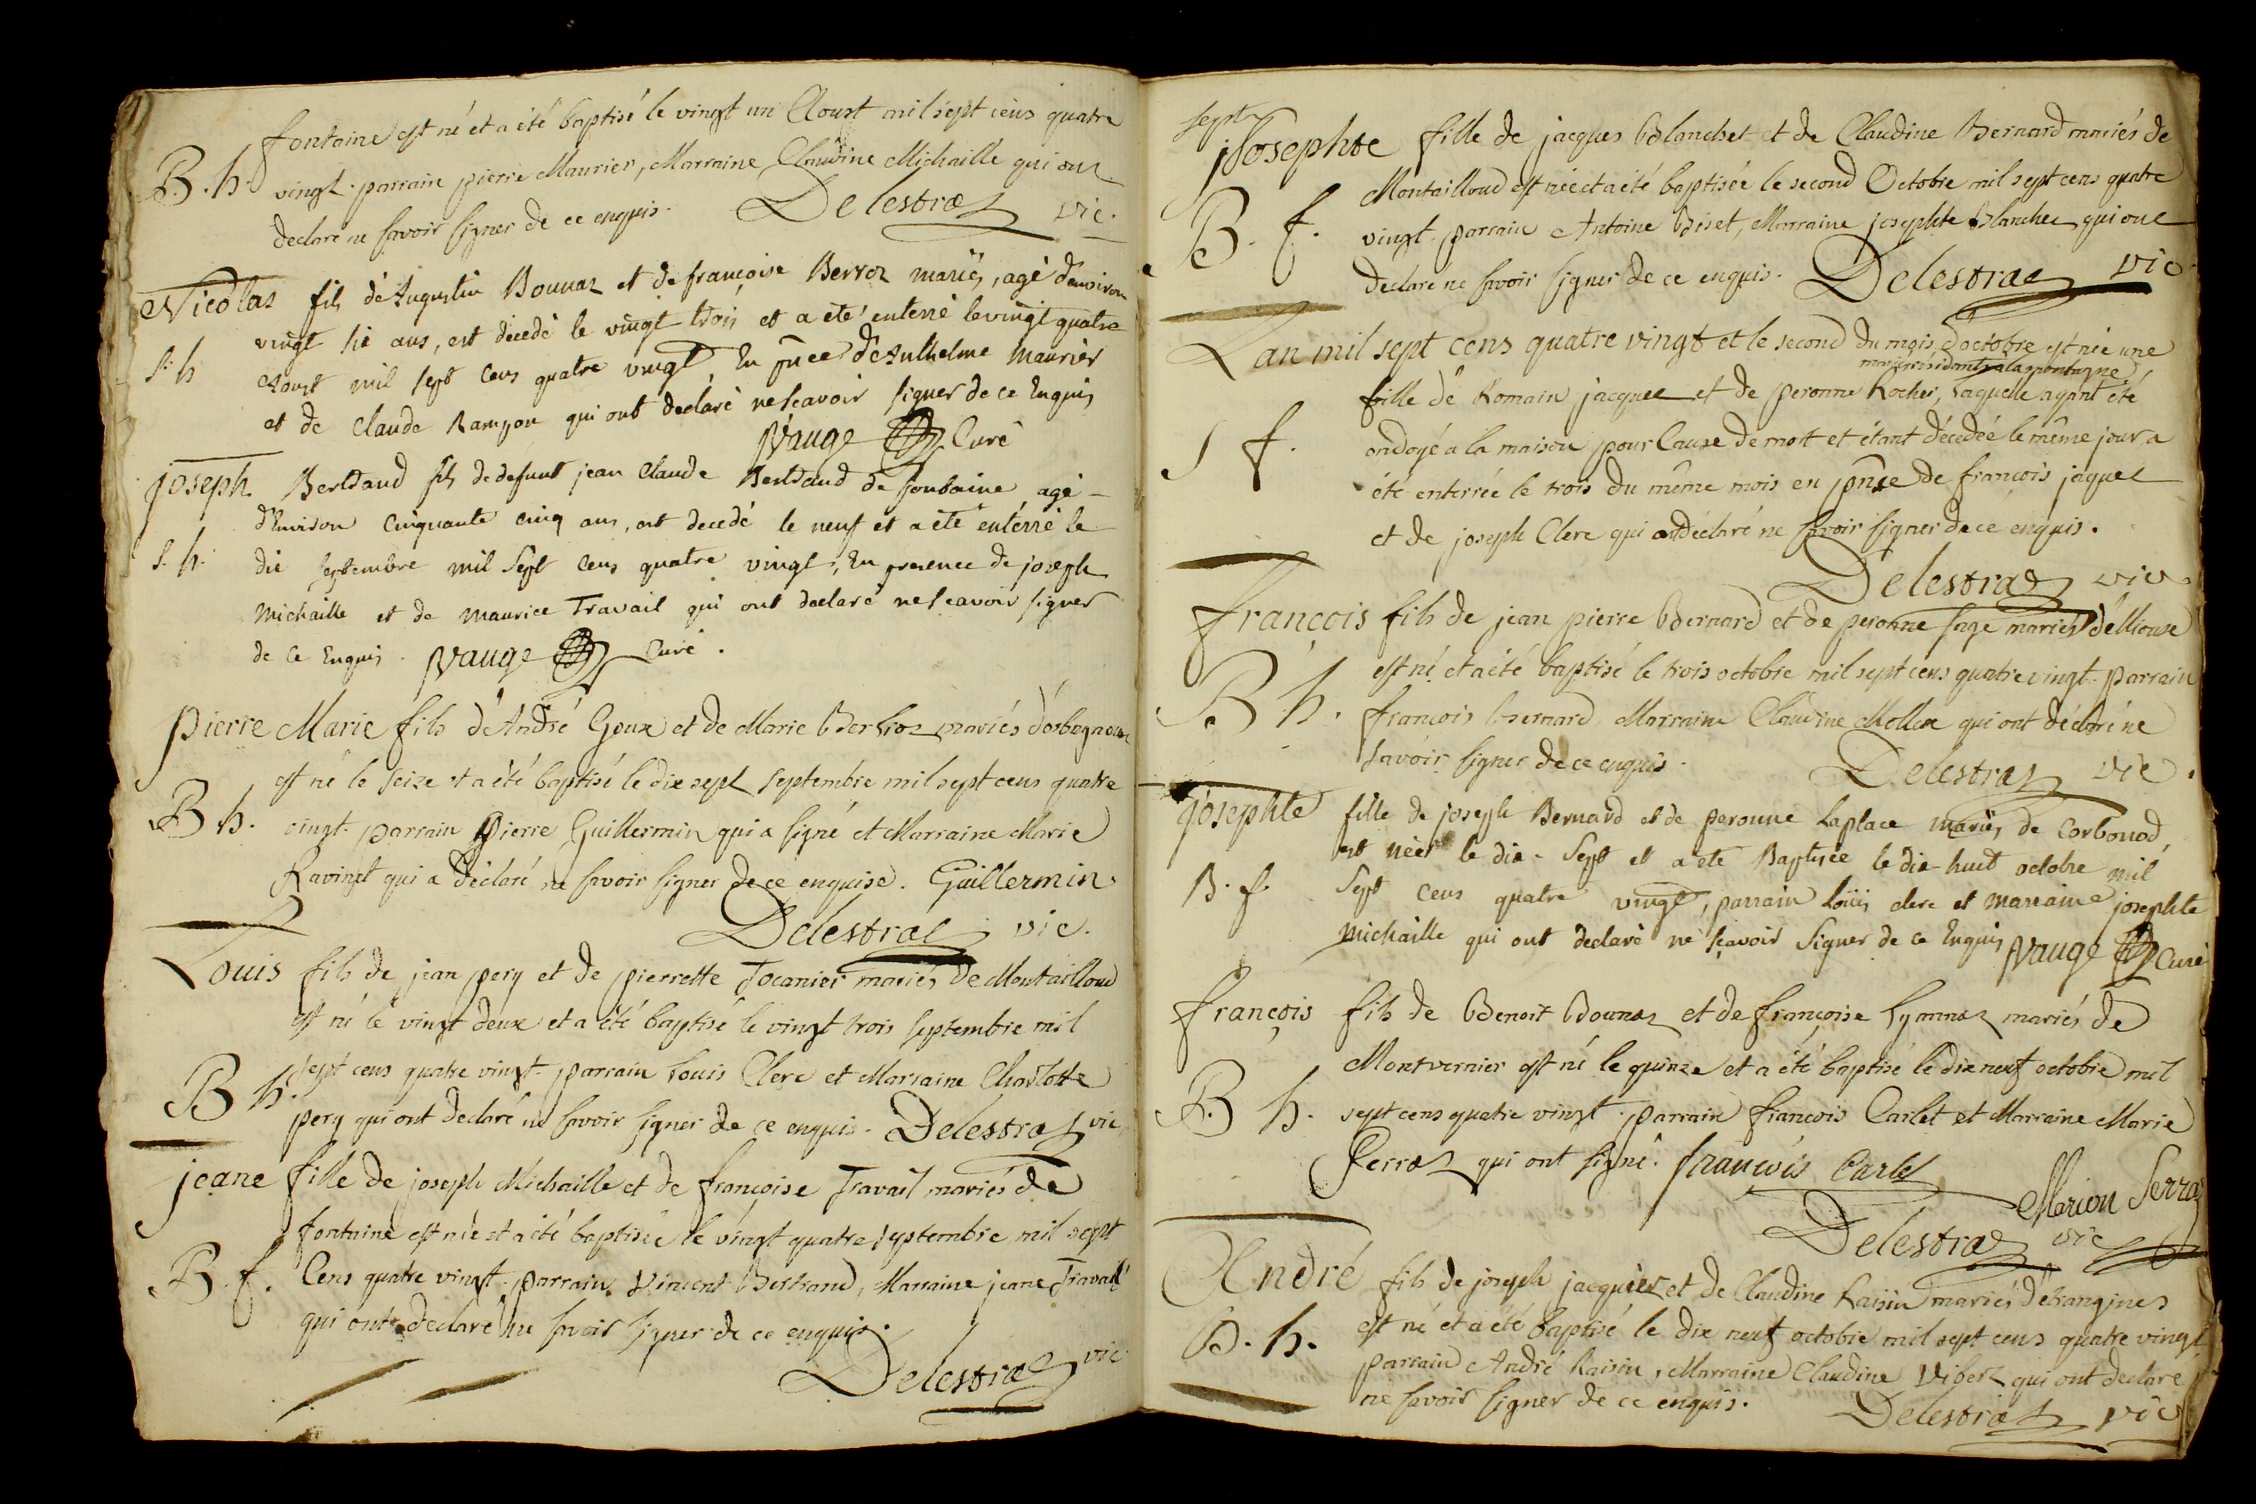 fontaine est né et a été baptisé le vingt un Aoust mil sept cens quatre
B. h. vingt. parrain pierre Maurier, Marraine Claudine Michaille qui ont
declaré ne savoir signer de ce enquis. Delestraz vic.
Nicolas fils de Augustin Bounaz et de françoise Berroz mariés, agé d'environ
vingt sié ans, est décedé le vingt trois et a été enterré le vingt quatre
S. h Aoust mil sept cens quatre vingt, En pnce d'Anthelme Maurier
et de Claude Ramyon qui ont declaré ne scavoir signer de ce Enquis
Vauge Curé
joseph Bertrand fils de defunt jean Claude Bertrand de fontaine agé
d'Environ Cinquante cinq ans, est decedé le neuf et a été enterré le
S. h. dix septembre mil sept cens quatre vingt, En presence de joseph
Michaille et de Maurice Travail qui ont declaré ne scavoir signer
de Ce Enquis. Vauge Curé.
pierre Marie fils d'André Goux et de Marie mariés d'orbagnoux
est né le seize et a été baptisé le dix sept septembre mil sept cens quatre
B h. vingt. parrain Pierre Guillermin qui a signé et Marraine Marie
Ravinet qui a déclaré ne savoir signer de ce enquise. Guillermin
Delestraz vic.
Louis fils de jean pery et de pierrette Tocanier mariés de Montailloud
est né le vingt deux et a été baptisé le vingt trois septembre mil
B h. sept cens quatre vingt. parrain Louis Clerc et Marraine Charlotte
pery qui ont declaré ne savoir signer de ce enquis. Delestraz vic
jeane fille de joseph Michaille et de françoise Travail mariés de
fontaine est née et a été baptisée le vingt quatre septembre mil sept
B. f. Cens quatre vingt. parrain Vincent Bertrand, Marraine jeane Travail
qui ont declaré ne savoir signer de ce enquis.
Delestraz vic
Josephte fille de jacques Blanchet et de Claudine Bernard mariés de
Montailloud est née et a été baptisée le second Octobre mil sept cens quatre
B. f. vingt. parrain Antoine Biset, Marraine josephte Blanchet qui ont
declaré ne savoir signer de ce enquis. Delestraz vic
Lan mil sept cens quatre vingt et le second du mois d'octobre est née une
mariés résidants a la montagne
fille de Romain jacquet et de peronne Rochet, Laquelle ayant été
S f. ondoyé a la maison pour Cause de mort et étant décedée le même jour a
été enterrée le trois du même mois en pnce de françois jaquet
et de joseph Clerc qui ont déclaré ne savoir signer de ce enquis.
Delestraz vic
françois fils de jean pierre Bernard et de peronne sage mariés d'Eliouse
est né et a été baptisé le trois octobre mil sept cens quatre vingt. parrain
B h. françois Bernard Marraine Claudine Mollex qui ont déclaré ne
savoir signer de ce enquis. Delestraz vic.
josephte fille de joseph Bernard et de peronne Laplace mariés de Corbonod,
est née le dix-sept et a été Baptisée le dix huit octobre mil
B. f. Sept cens quatre vingt, parrain Loüis clerc et marraine josephte
Michaille qui ont declaré ne scavoir signer de ce Enquis Vauge Curé
françois fils de Benoit Bounaz et de françoise Symmoz mariés de
Montvernier est né le quinze et a été baptisé le dix neuf octobre mil
B. h. sept cens quatre vingt. parrain françois Carlet et Marraine Marie
Serraz qui ont signé. francois Carlet
Marion Serraz
Delestraz vic
André fils de joseph jacquier et de Claudine Raisin mariés d'Etrangines
est né et a été baptisé le dix neuf octobre mil sept cens quatre vingt
B. h. parrain André Raisin, Marraine Claudine Vibert qui ont declaré
ne savoir signer de ce enquis. Delestraz vic